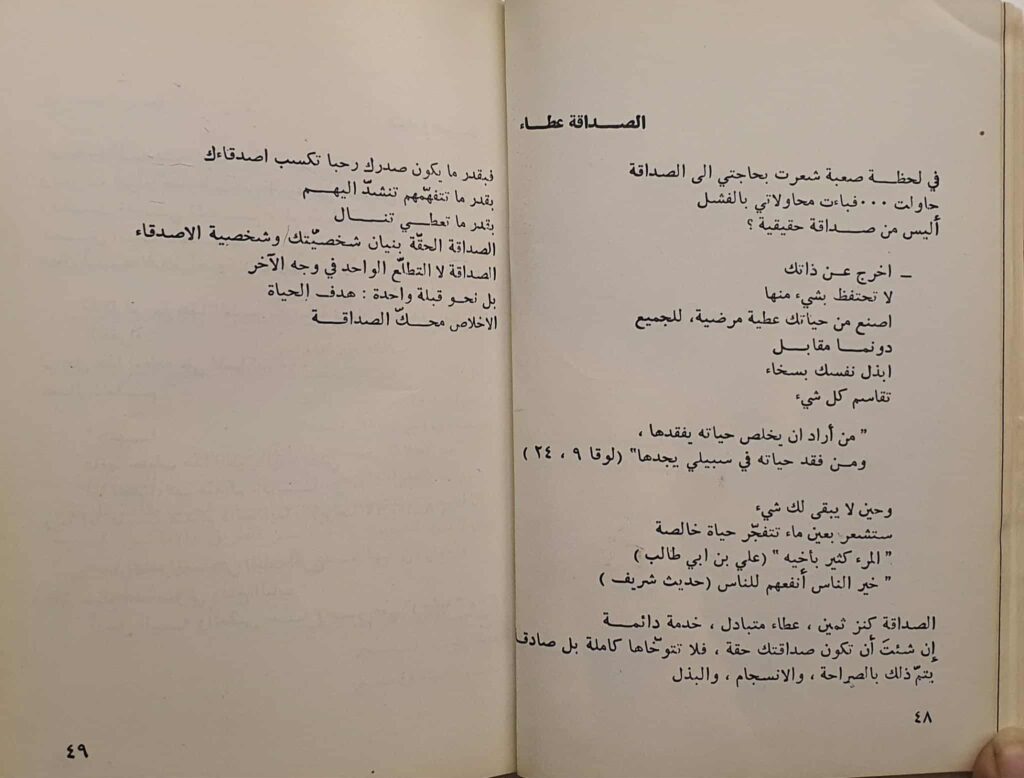 الصداقة عطاء
في لحظة صعبة شعرت بحاجتي الى الصداقة
حاولت ٠٠٠ فباءت محاولاتي بالفشل
أليس من صداقة حقيقية ؟
ـ اخرج عن ذاتك
لا تحتفظ بشيء منها
اصنع من حياتك عطية مرضية، للجميع
دونما مقابل
ابذل نفسك بسخاء
تقاسم كل شيء
" من أراد ان يخلص حياته يفقدها ،
ومن فقد حياته في سبيلي يجدها" (لوقا ٩ ، ٢٤ )
وحين لا يبقى لك شيء
ستشعر بعين ماء تتفجّر حياة خالصة
" المرء كثير بأخيه " (علي بن ابي طالب )
" خير الناس أنفعهم للناس (حديث شريف )
الصداقة كنز ثمين ، عطاء متبادل ، خدمة دائمة
إن شئتَ أن تكون صداقتك حقة ، فلا تتوخّاها كاملة بل صادقا
يتمّ ذلك بالصراحة ، والانسجام ، والبذل
٤٨
فبقدر ما يكون صدرك رحبا تكسب اصدقاءك
بقدر ما تتفهّمهم تنشدّ اليهم
بقدر ما تعطي تنال
الصداقة الحقّة بنيان شخصيّتك/ وشخصبية الاصدقاء
الصداقة لا التطلّع الواحد في وجه الآخر
بل نحو قبلة واحدة : هدف الحياة
الاخلاص محكّ الصداقة
٤٩